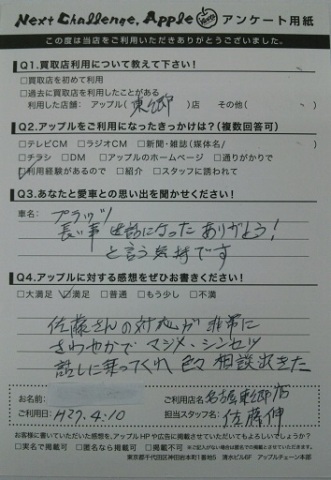 Next Challenge, Apple アンケート用紙
この度は当店をご利用いただきありがとうございました。
Q1.買取店利用について教えて下さい!
□買取店を初めて利用
□過去に買取店を利用したことがある
利用した店舗: アップル(東郷)店 その他( )
Q2.アップルをご利用になったきっかけは?(複数回答可)
□テレビCM □ラジオCM □新聞・雑誌(媒体名/ )
□チラシ □DM □アップルのホームページ □通りがかりで
☑利用経験があるので □紹介 □スタッフに誘われて
Q3.あなたと愛車との思い出を聞かせください!
車名: プラッツ
長い事 世話になった ありがとう!
と言う気持です
Q4.アップルに対する感想をぜひお書きください!
□大満足 ☑満足 □普通 □もう少し □不満
佐藤さんの対応が 非常に
さわやかで マジメ、シンセツ
話しに乗ってくれ 色々 相談出きた
お名前:
ご利用店名 名古屋東郷店
ご利用日: H27.4.10
担当スタッフ名: 佐藤 伸
お客様に書いていただいた感想を、アップルHPや広告に掲載させていただいてもよろしいでしょうか?
□実名で掲載可 □匿名なら掲載可 □掲載不可
東京都千代田区神田佐久町1番地5 清水ビル6F アップルチェーン本部